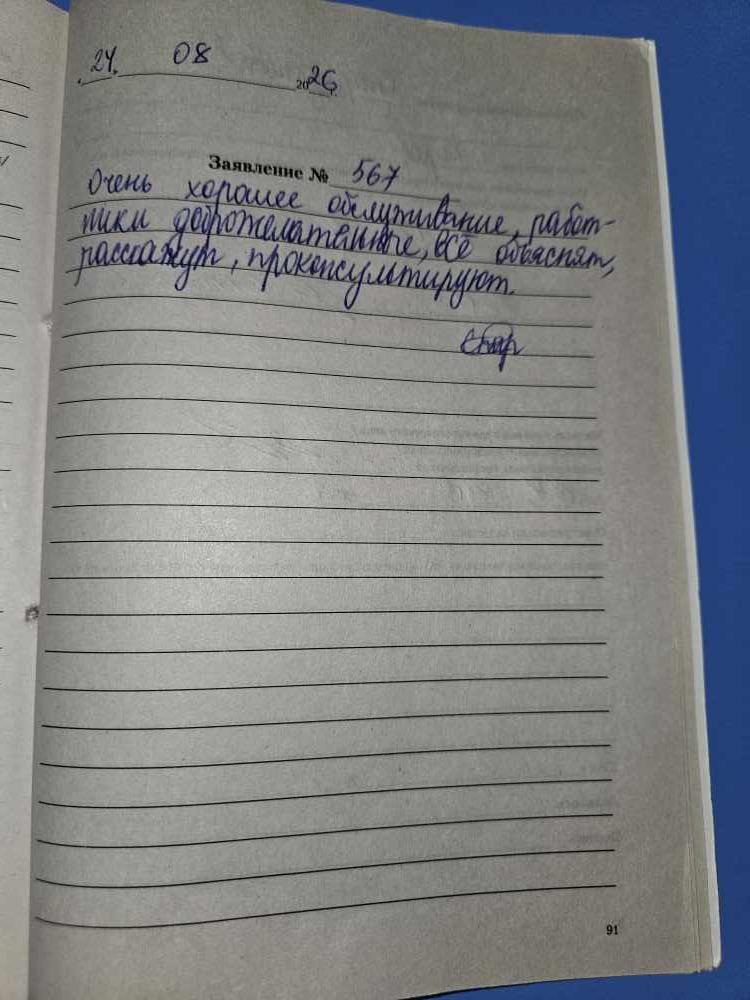 24. 08 2026
Заявление № 567
Очень хорошее обслуживание, работ-
ники доброжелательные, всё объяснят,
расскажут, проконсультируют.
91